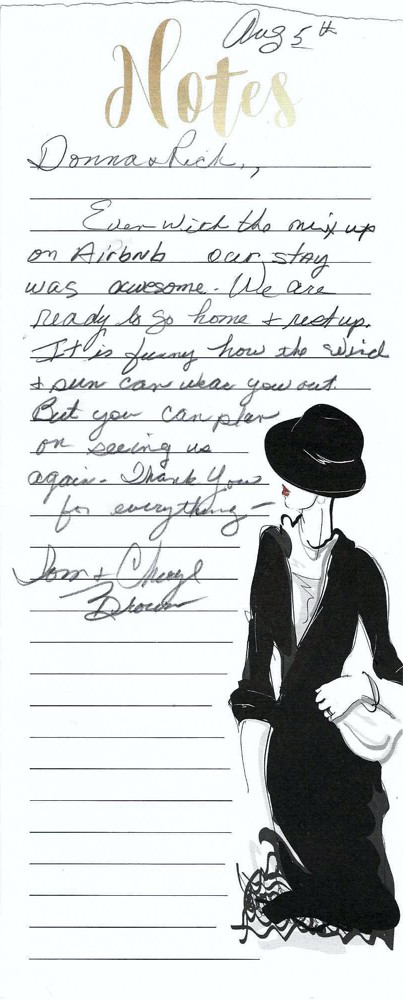 Aug 5th
Notes
Donna & Rick,,
Even with the mix up
on Airbnb our stay
was awesome. We are
ready to go home + rest up.
It is funny how the wind
+ sun can wear you out.
But you can plan
on seeing us
again. Thank You
for everything—
Tom + Cheryl
Brown